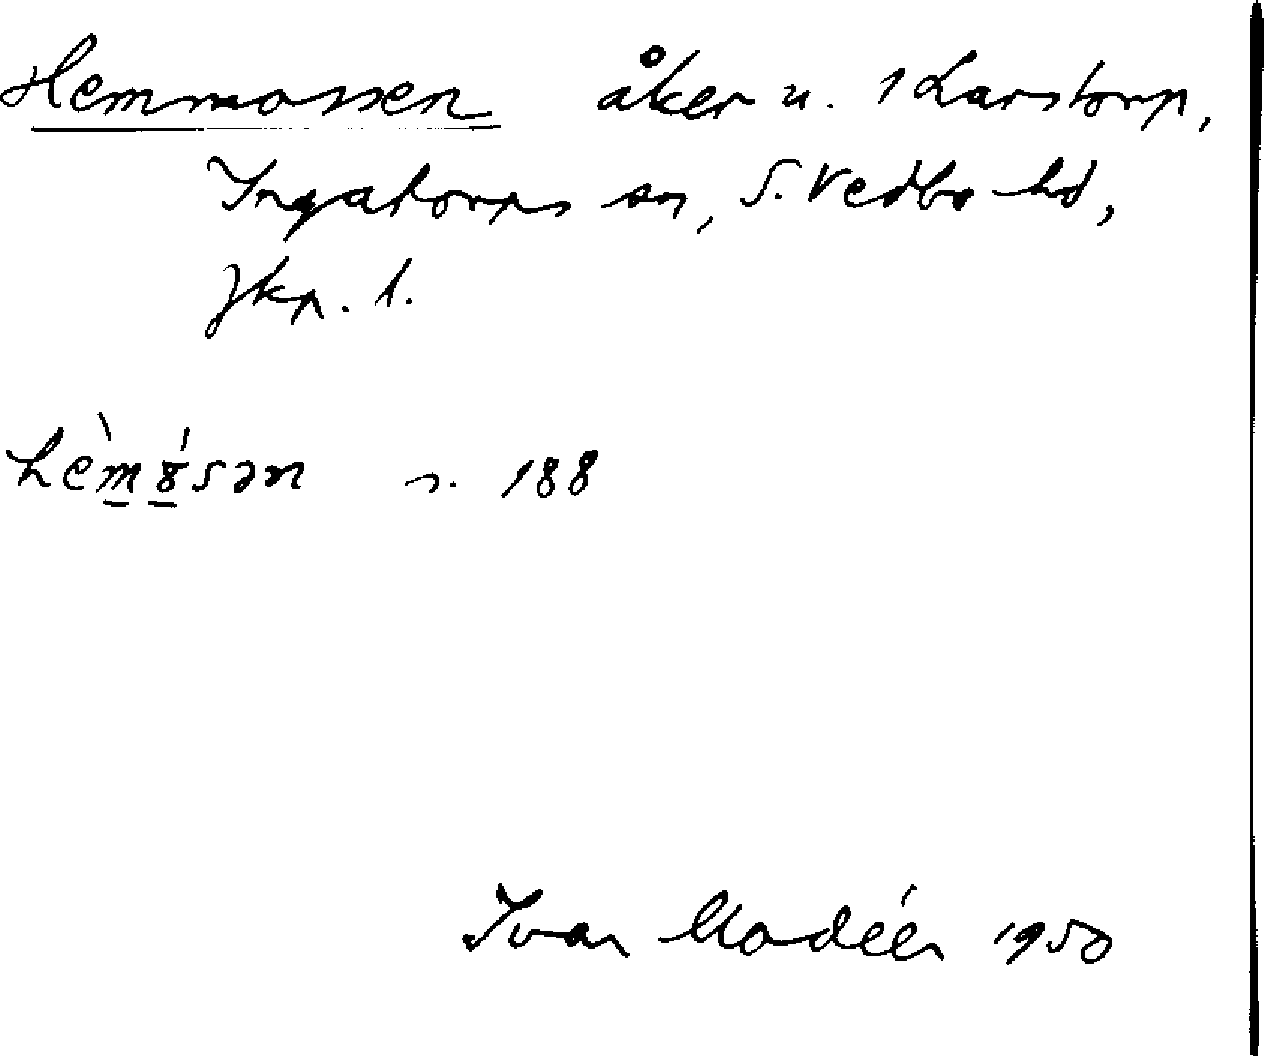 Hemmossen åker u. 1 Larstorp,
Ingatorps sn, S. Vedbo hd,
Jkp. l.
hèm󠀠ɤ́sən s. 188
Ivar Modéer 1950